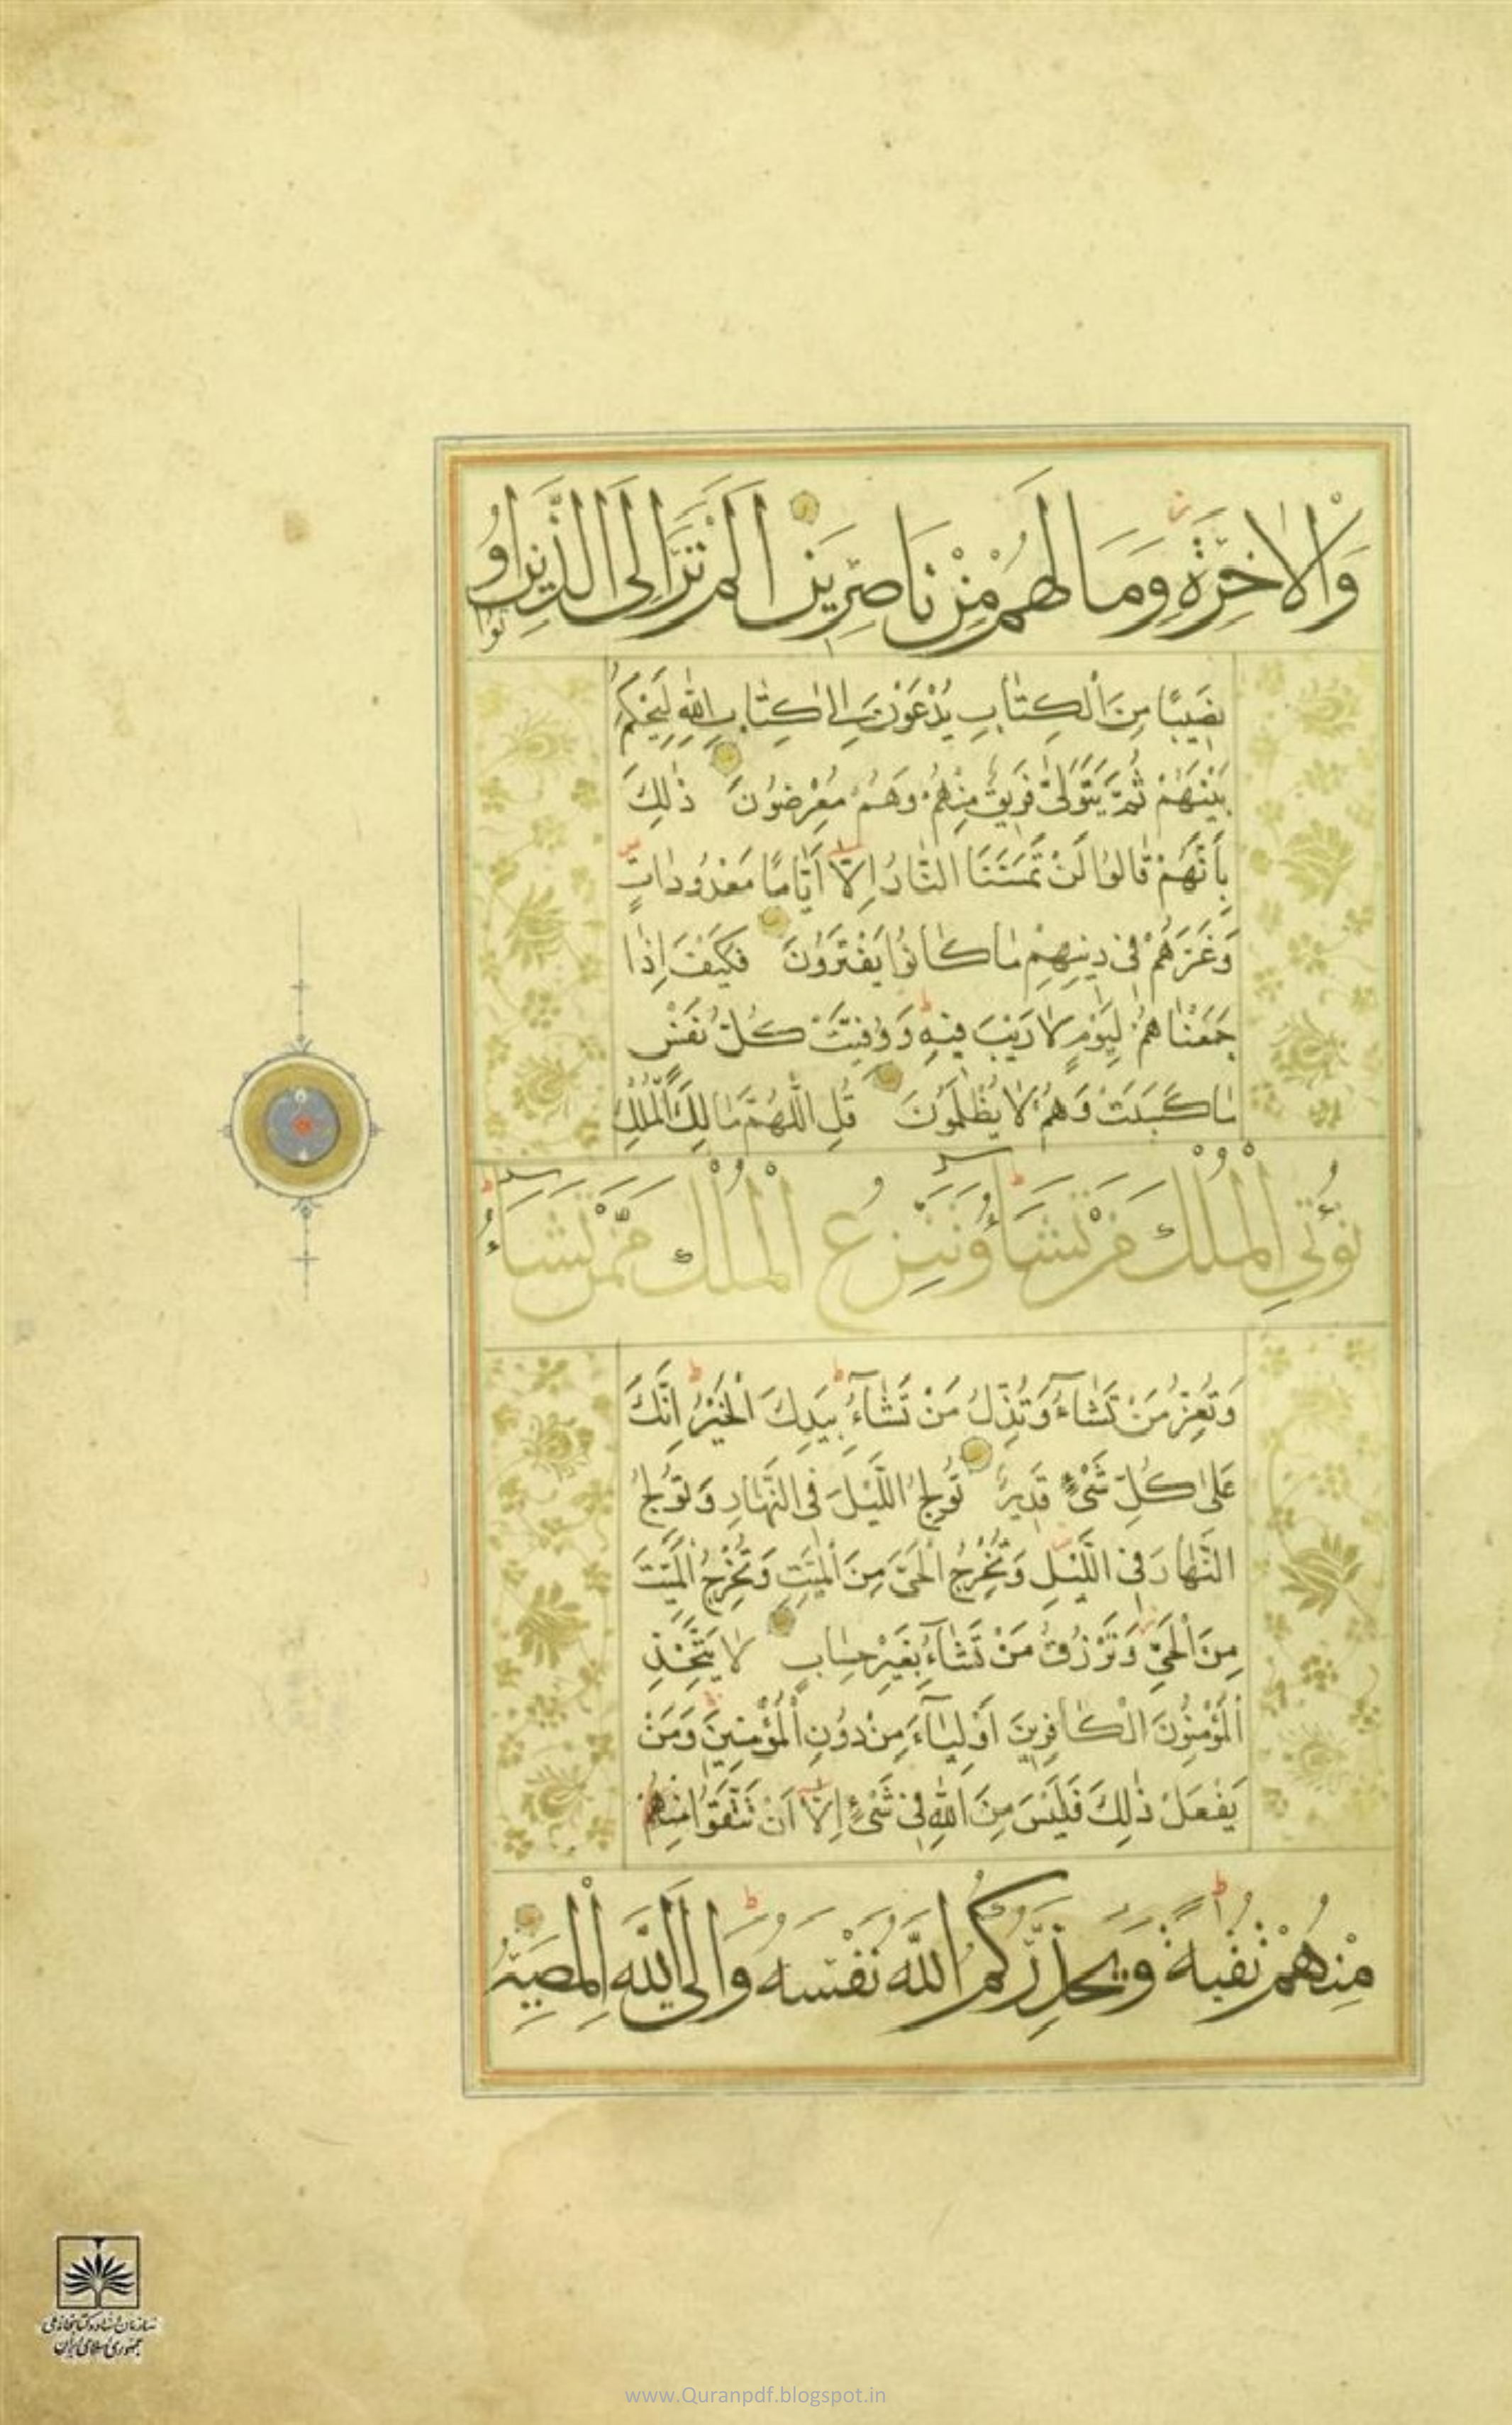 وَالْاٰخِرَةِ وَمَا لَهُمْ مِنْ نَاصِرِينَ اَلَمْ تَرَ اِلَى الَّذِينَ اُو
تُوا
نَصِيبًا مِنَ الْكِتَابِ يُدْعَوْنَ اِلٰى كِتَابِ اللّٰهِ لِيَحْكُمَ
بَيْنَهُمْ ثُمَّ يَتَوَلّٰى فَرِيقٌ مِنْهُمْ وَهُمْ مُعْرِضُونَ ذٰلِكَ
بِأَنَّهُمْ قَالُوا لَنْ تَمَسَّنَا النَّارُ اِلَّا أَيَّامًا مَعْدُودَاتٍ
وَغَرَّهُمْ فِي دِينِهِمْ مَا كَانُوا يَفْتَرُونَ فَكَيْفَ اِذَا
جَمَعْنَاهُمْ لِيَوْمٍ لَا رَيْبَ فِيهِ وَوُفِّيَتْ كُلُّ نَفْسٍ
مَا كَسَبَتْ وَهُمْ لَا يُظْلَمُونَ قُلِ اللّٰهُمَّ مَالِكَ الْمُلْكِ
تُؤْتِي الْمُلْكَ مَنْ تَشَاءُ وَتَنْزِعُ الْمُلْكَ مِمَّنْ تَشَاءُ
وَتُعِزُّ مَنْ تَشَاءُ وَتُذِلُّ مَنْ تَشَاءُ بِيَدِكَ الْخَيْرُ اِنَّكَ
عَلٰى كُلِّ شَيْءٍ قَدِيرٌ تُولِجُ اللَّيْلَ فِي النَّهَارِ وَتُولِجُ
النَّهَارَ فِي اللَّيْلِ وَتُخْرِجُ الْحَيَّ مِنَ الْمَيِّتِ وَتُخْرِجُ الْمَيِّتَ
مِنَ الْحَيِّ وَتَرْزُقُ مَنْ تَشَاءُ بِغَيْرِ حِسَابٍ لَا يَتَّخِذِ
الْمُؤْمِنُونَ الْكَافِرِينَ اَوْلِيَاءَ مِنْ دُونِ الْمُؤْمِنِينَ وَمَنْ
يَفْعَلْ ذٰلِكَ فَلَيْسَ مِنَ اللّٰهِ فِي شَيْءٍ اِلَّا اَنْ تَتَّقُوا مِنْهُمْ
مِنْهُمْ تُقٰيةً وَيُحَذِّرُكُمُ اللّٰهُ نَفْسَهُ وَاِلَى اللّٰهِ الْمَصِيرُ
سازمان اسناد و کتابخانه ملی
جمهوری اسلامی ایران
www.Quranpdf.blogspot.in